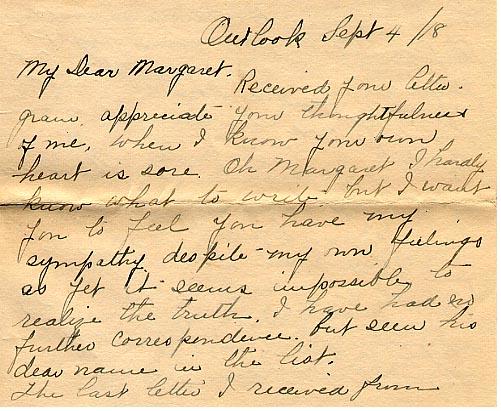 Outlook Sept 4/18
My Dear Margaret.
Received your letter.
gram, appreciate your thoughtfulness
of me, when I know your own
heart is sore. Oh Margaret I hardly
know what to write but I want
you to feel you have my
sympathy despite my own feelings
as yet it seems impossible to
realize the truth. I have had no
further correspondence, but seen his
dear name in the list.
The last letter I received from